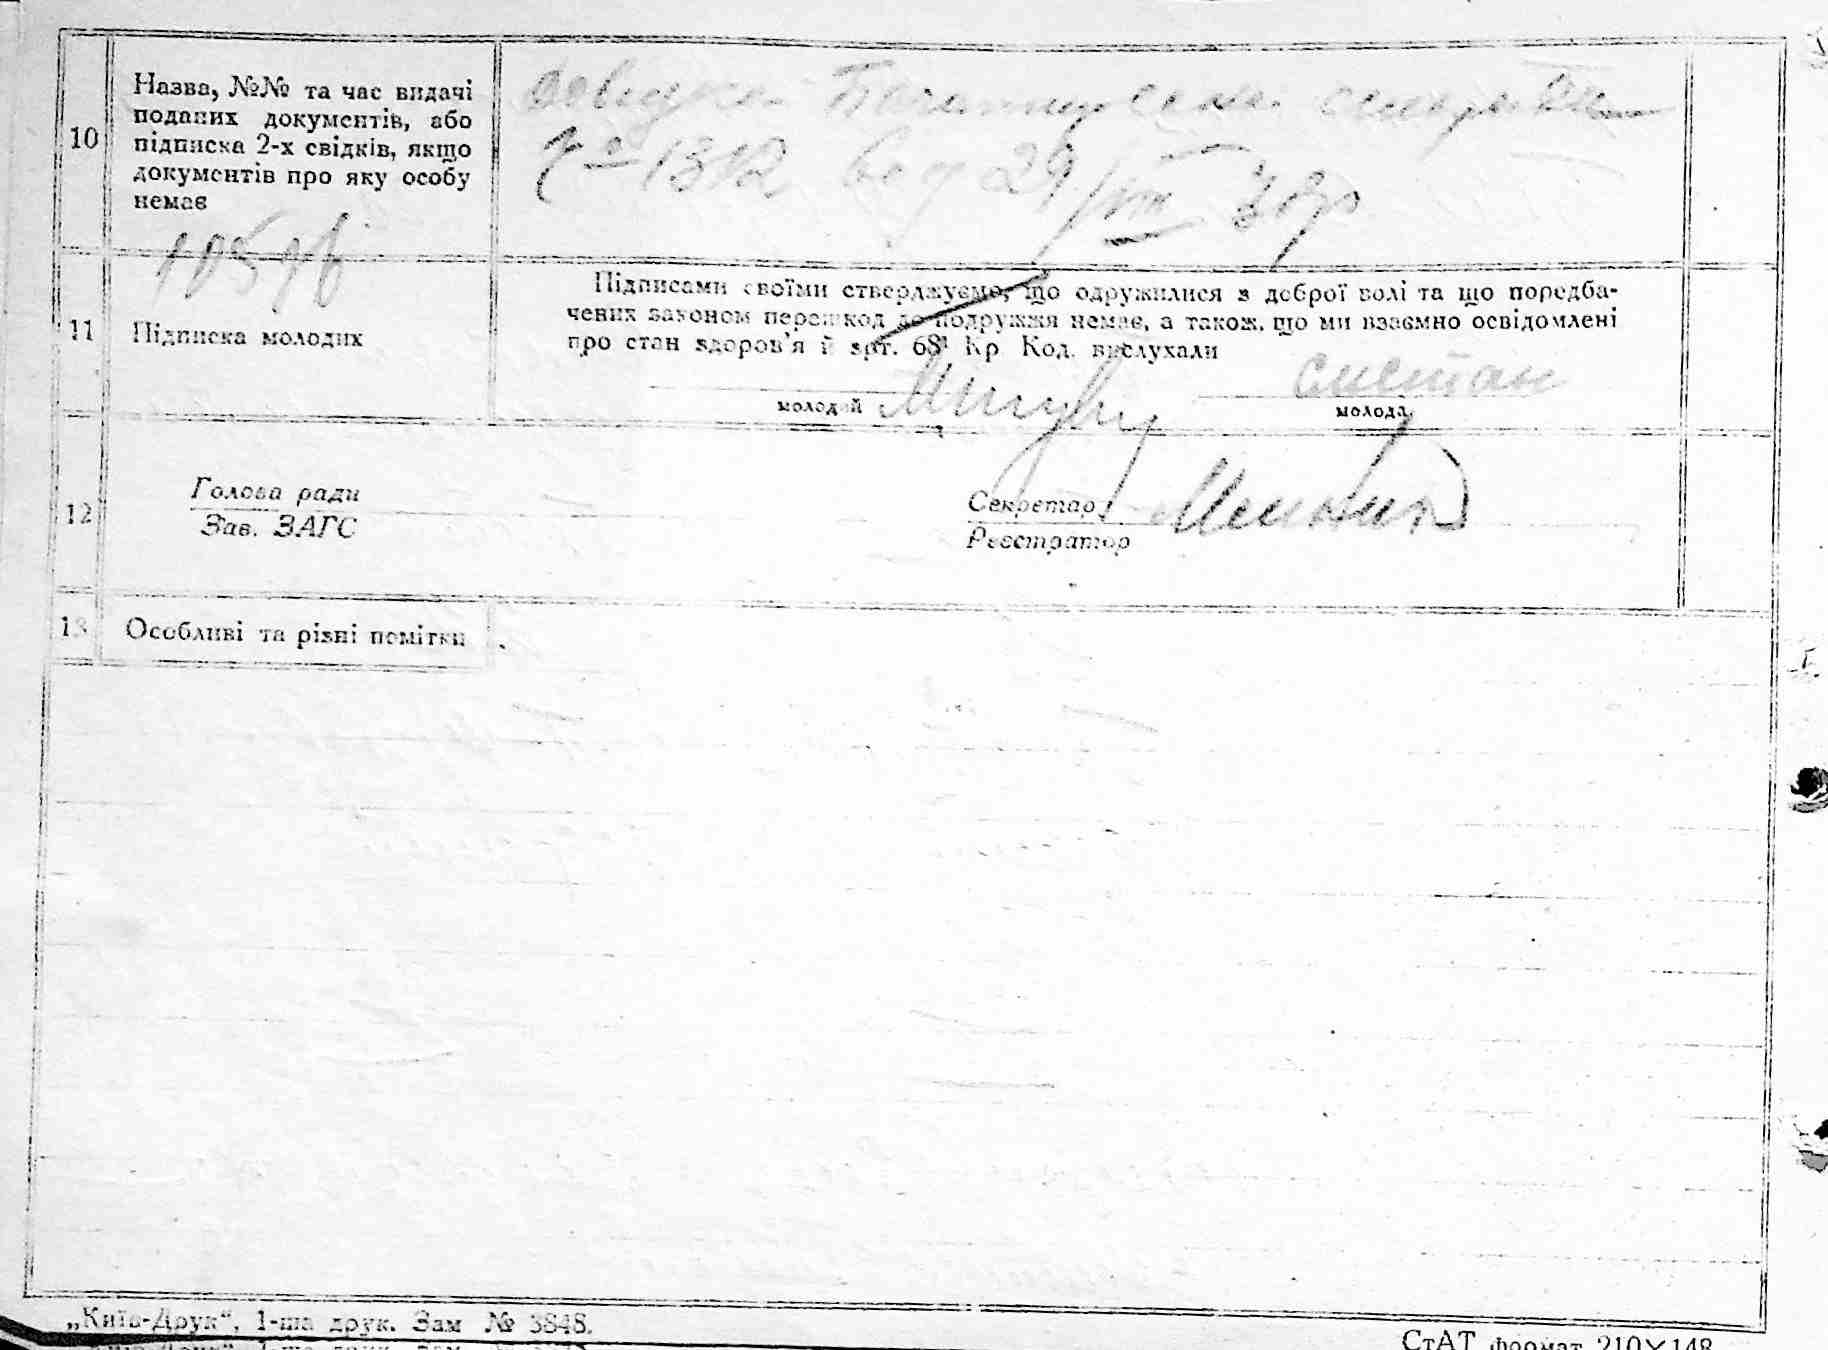 10
Назва, №№ та час видачі
поданих документів, або
підписка 2-х свідків, якщо
документів про яку особу
немає
Довидка
№ 1312 вед 29/VIII 38р
11
Підписка молодих
Підписами своїми стверджуємо, що одружилися з доброї волі та що передба-
чених законом перешкод до подружжя немає, а також, що ми взаємно освідомлені
про стан здоров'я й арт. 68¹ Кр. Код. вислухали
сметан
молодий
молода
12
Голова ради
Зав. ЗАГС
Секретар
Реєстратор
13
Особливі та різні помітки
„Київ-Друк“, 1-ша друк. Зам № 3848.
СтАТ формат 210×148